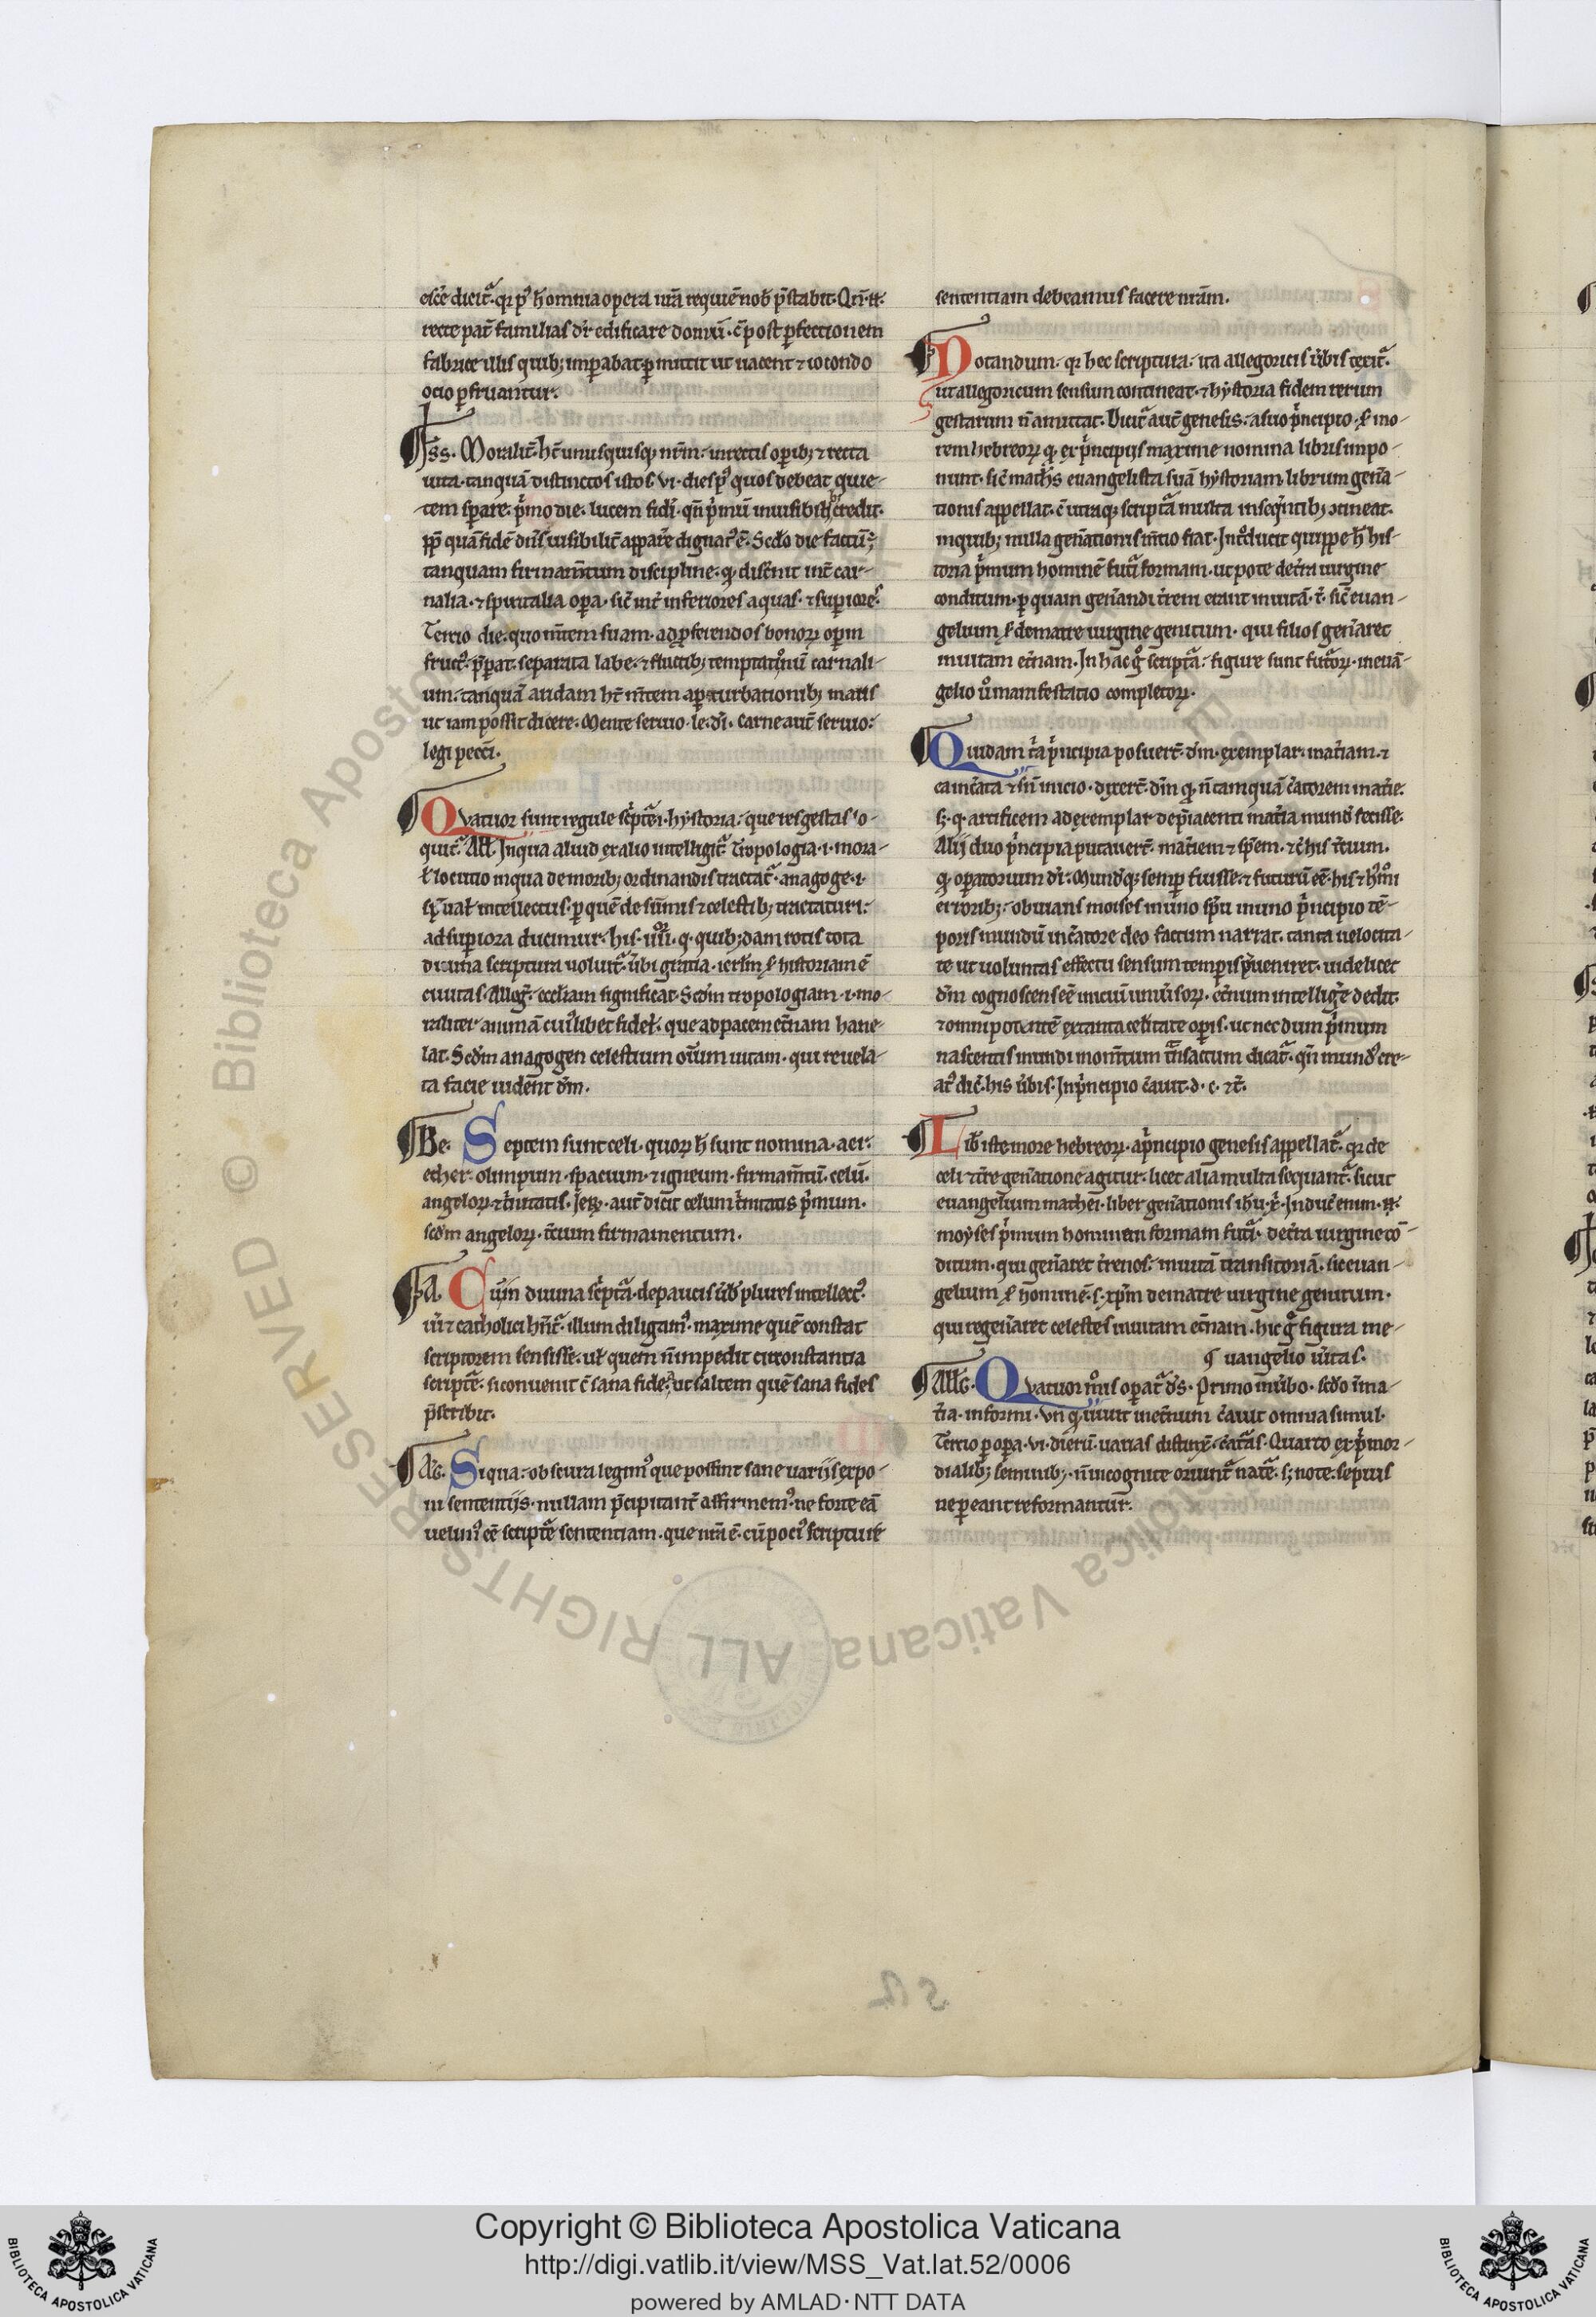 esce dicit᷑. q̄ p᷒ h̄ omnia opera nr̄a requiē nob̄ p̄stabit. Qn̄. n̄.
recte pat̄ familias dr̄ edificare domū. c̄ post ꝑfectionem
fabrice illis quibꝫ imꝑabat ꝑmittit ut uacent ⁊ iocondo
ocio ꝑfruantur.
Iss. Moralit̄. ht̄ unusquisqꝫ nr̄m. in rectis oꝑibꝫ ⁊ recta
uita. tanquā distinctos istos. vi. dies p᷒ quos debeat quie-
tem sꝑare. p̄mo die. lucem fidi. qn̄ p̄mū inuisibilibꝫ credit.
pp̄ quā fidē dn̄s uisibilit̄ apparē dignat᷒ ē. Scd̄o die factū
tanquam firmam̄tum discipline. q̄ discnit int̄ car-
nalia. ⁊ spiritalia oꝑa. sic̄ int̄ inferiores aquas. ⁊ suꝑiores.
Tercio die. quo m̄tem suam. ad ꝓferendos bonoꝝ oꝑum
fruct᷒. p̄ꝑat. separata labe. ⁊ fluctibꝫ temptationū carnali-
um. tanquā aridam ht̄ m̄tem a ꝑturbationibꝫ maris
ut iam possit dicere. Mente seruio. le. di. carne aut̄ seruio.
legi pecc̄i.
Quatuor sunt regule sc̄ptē. i. hystoria. que res gestas lo-
quit᷑. All̄. In qua aliud ex alio intelligit᷑. Tropologia .i. mora-
lꝉ locutio in qua de moribꝫ ordinandis tractat᷑. anagoge .i.
sp̄ualꝉ intellectus. ꝑ quē de sūmis ⁊ celestibꝫ tractaturi.
ad suꝑiora ducimur. his. iiii. q. quibꝫdam rotis tota
diuina scriptura uoluit᷑. ūbi gratia. ierl̄m ẜ historiam ē
ciuitas. Alleḡ. eccl̄iam significat. Scd̄m tropologiam .i. mo-
raliter animā cui᷒libet fidelꝉ. que ad pacem et̄nam hane-
lat. Scd̄m anagogen celestium oīum uitam. qui reuela-
ta facie uident dm̄.
Be. Septem sunt celi. quoꝝ h̄ sunt nomina. aer.
ether. olimpium. spacium. ⁊ igneum. firmam̄tū. celū.
angeloꝝ. ⁊ t̄nitatis. Jeꝝ. aut̄ dicit celum t̄nitatis p̄mum.
scd̄m angeloꝝ. t̄cium firmamentum.
A. Cum diuina sc̄pta. de paucis ūb᷒ plures intellect᷒.
ūi ⁊ catholici hn̄t᷑. illum diligam᷒. maxime quē constat
scriptorem sensisse. ulꝉ quem n̄ impedit circunstantia
scriptē. si conuenit c̄ sana fide. ut saltem quē sana fides
p̄scribit.
Ag. Si qua. obscura legim᷒ que possint sane uarijs expo-
ni sentencijs. nullam p̄cipitant̄ affirmem᷒. ne forte eā
uelim᷒ eē scriptē sentenciam. que nr̄a ē. cū poci᷒ scripture
sententiam debeamus facere nr̄am.
Notandum. q̄ hec scriptura. ita allegoricis ūbis texit᷑.
ut allegoricum sensum contineat. ⁊ hystoria fidem rerum
gestarum n̄ amittat. Dicit᷑ aut̄ genesis. a suo p̄ncipio. ẜ mo-
rem hebreoꝝ q̄. ex p̄ncipijs maxime nomina libris impo-
nunt. sic̄ math̄s euangelista suā hystoriam librum gen̄a-
tionis appellat. c̄ utraqꝫ scripta multa inseqn̄tibꝫ ꝯtineat.
in quibꝫ nulla gen̄ationis m̄tio fiat. Int᷒ducit quippe h̄ his-
toria p̄mum hominē futi formam. ut pote de t̄ra uirgine
conditum. ꝑ quam gen̄andi t̄rem erant in uitā. t̄. sic̄ euan-
gelium ẜ de matre uirgine genitum. qui filios gen̄aret
in uitam et̄nam. In hac ḡ scripta. figure sunt futoꝝ. in euā-
gelio u᷒ manifestatio completoꝝ.
Quidam t̄a p̄ncipia posuert̄. dm̄. exemplar. mat̄iam. ⁊
ca inc̄ata ⁊ sn̄ inicio. dixert̄. dm̄ q̄ n̄ tamquā c̄atorem mat̄ie.
sꝫ. q. artificem ad exemplar de p̄iacenti mat̄ia mund᷒ fecisse.
Alij duo p̄ncipia putauert̄. mat̄iem ⁊ sp̄em. ⁊ c̄ his t̄cium.
q̄ oꝑatorium dr̄. Mund᷒qꝫ semꝑ fuisse. ⁊ futurū eē. his ⁊ h᷒moi
erroribꝫ. obuians moises in uno sp̄u in uno p̄ncipio tē-
poris mundū in c̄atore deo factum narrat. tanta uelocita-
te ut uoluntas effectu sensum tempis p̄ueniret. uidelicet
dm̄ cognoscens eē unicū uniūsoꝝ. et̄num intelligē dedit.
⁊ omnipotentē ex tanta celitate oꝑis. ut nec dum p̄mum
nascentis mundi mom̄tum t̄nsactum dicat᷑. qn̄ mund᷒ cre-
at᷒ dic̄. his ūbis. In p̄ncipio c̄auit. d. c. ⁊ t̄.
Lib̄ iste more hebreoꝝ. a p̄ncipio genesis appellat᷑. q̄ de
celi ⁊ t̄re gen̄atione agitur. licet alia multa sequant᷑. sicut
euangelium mathei. liber gen̄ationis ih̄u. x̄. Inducē enim. n̄.
moyses p̄mum hominem formam futi. de t̄ra uirgine cō-
ditum. qui gen̄aret t̄renos. in uitā transitoriā. sic euan-
gelium ẜ hominē. s. xp̄m de matre uirgine genitum.
qui regen̄aret celestes in uitam et̄nam. hic ḡ figura me-
¶ uangelio ūitas.
All̄G. Quatuor m᷒is oꝑat᷑ ds̄. Primo in ūbo. scd̄o in ma-
t̄ia. informi. un̄ q̄. uiuit in et̄num c̄auit omnia simul.
Tercio ꝑ oꝑa. vi. dierū. uarias distinx̄. c̄atas. Quarto ex p̄mor-
dialibꝫ seminibꝫ. n̄ incognite oriunt᷑ natē. sꝫ note. sepius
ne ꝑeant reformantur.
Copyright © Biblioteca Apostolica Vaticana
http://digi.vatlib.it/view/MSS_Vat.lat.52/0006
powered by AMLAD·NTT DATA